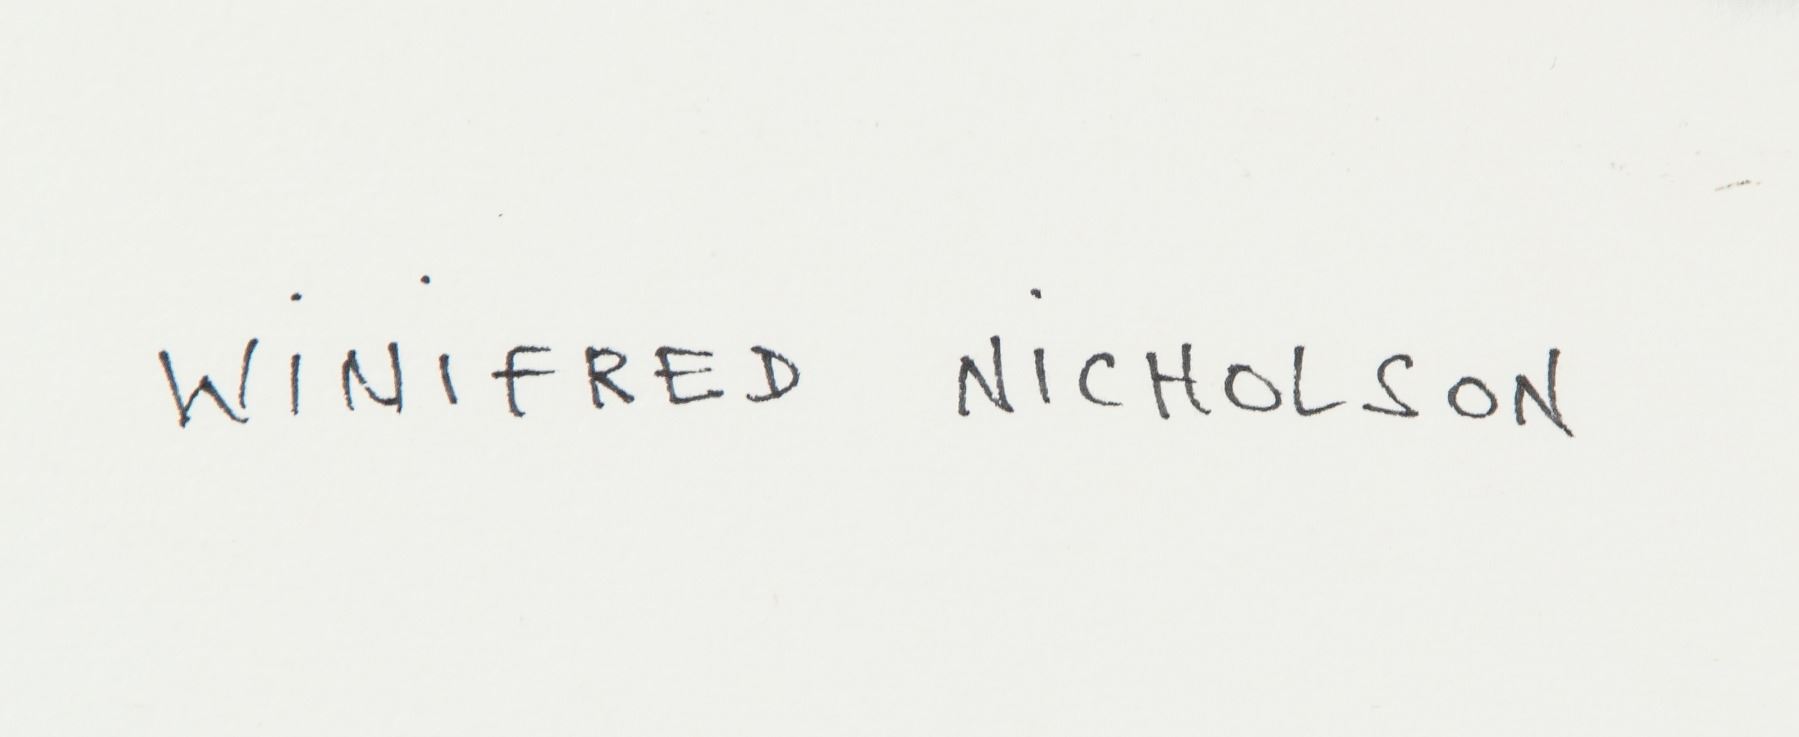 WiNiFRED NiCHOLSON